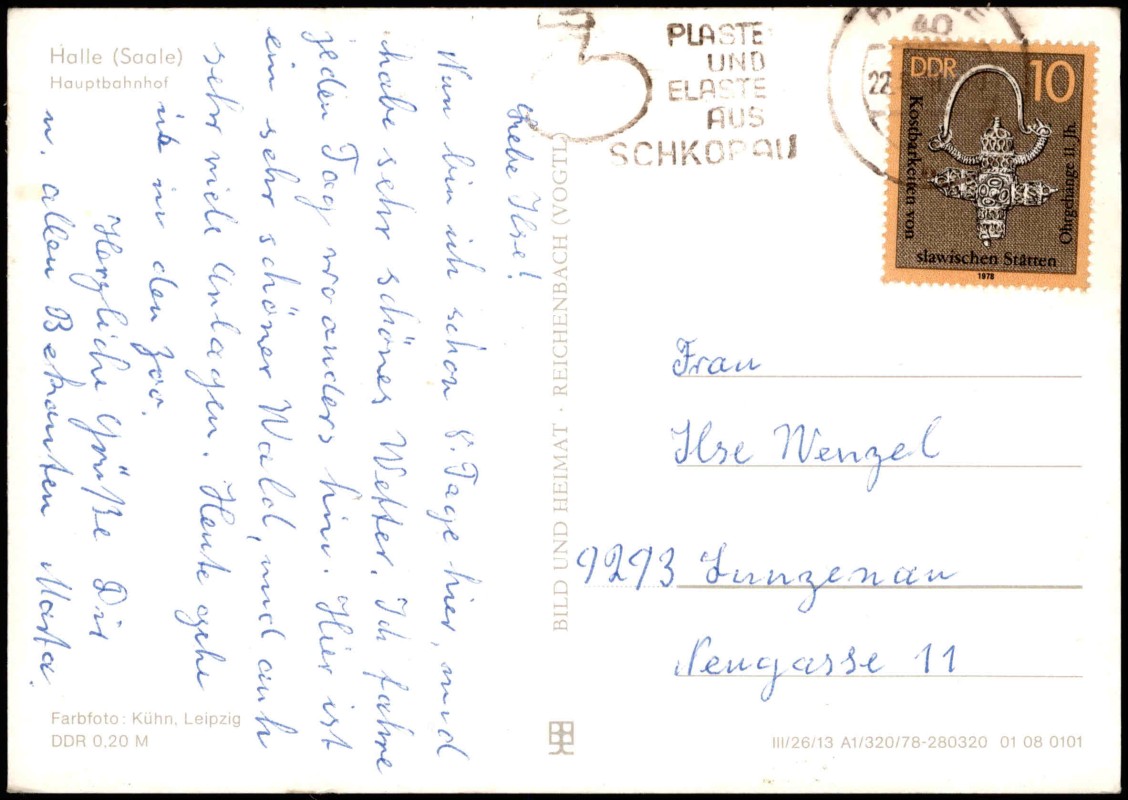 Halle (Saale)
Hauptbahnhof
Liebe Ilse!
Nun bin ich schon 8 Tage hier, und
habe sehr schönes Wetter. Ich fahre
jeden Tag wo anders hin. Hier ist
ein sehr schöner Wald, und auch
sehr viele Anlagen. Heute gehe
ich in den Zoo.
Herzliche Grüße Dir
u. allen Bekanten Marta.
Farbfoto: Kühn, Leipzig
DDR 0,20 M
BILD UND HEIMAT · REICHENBACH (VOGTL)
PLASTE
UND
ELASTE
AUS
SCHKOPAU
22
DDR 10
Kostbarkeiten von
slawischen Stätten
Ohrgehänge 11. Jh.
1978
Frau
Ilse Wenzel
9293 Lunzenau
Neugasse 11
III/26/13 A1/320/78-280320 01 08 0101